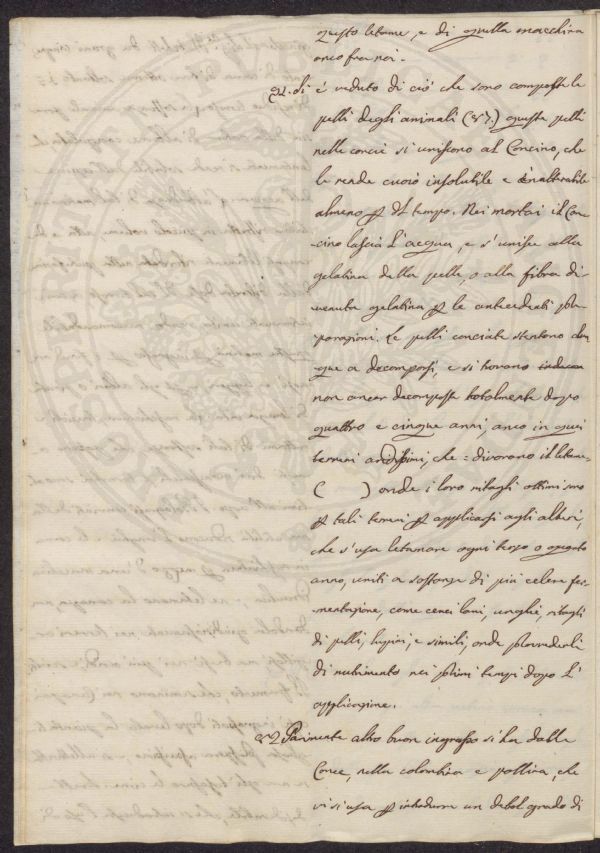 questo letame, e di quella macchina
anco fra noi.
Si è veduto di ciò che sono composte le
pelli degli animali (87.) queste pelli
nelle concie si uniscono al Concino, che
le rende cuoio insolubile e inalterabile
almeno p del tempo. Nei mortai il Con
-cino lascia l'acqua, e s'unisce alla
gelatina della pelle, o alla fibra di-
venuta gelatina p le antecedenti pre
parazioni. Le pelli conciate stentono dun
que a decomporsi, e si trovano
non ancor decomposte totalmente dopo
quattro e cinque anni, anco in quei
terreni aridissimi, che = divorono il letame =
( ) onde i loro ritagli ottimi sono
p tali terreni p applicarsi agli alberi,
che s'usa letamare ogni terzo o quarto
anno, uniti a sostanze di più celere fer
-mentazione, come cenci lani, unghie, ritagli
di pelli, lupini, e simili, onde provvederli
di nutrimento nei primi tempi dopo l'
applicazione.
92 Parimente altro buon ingrasso si ha dalle
Conce, nella colombina e pollina, che
vi si usa p introdurre un debol grado di